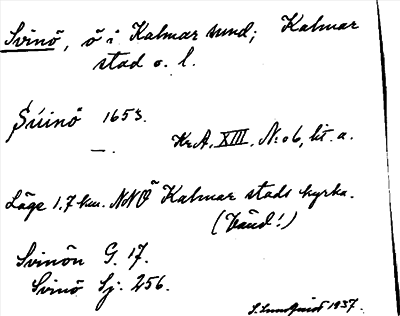 Svinö, ö i Kalmar sund; Kalmar
stad o. l.
Suinö 1653.
— . Kr.A. XIII. N:o 6, lit. a.
Läge 1.7 km. NNÖ Kalmar stads kyrka.
(Bänd!)
Svinön G. 17.
Svinö Sj. 256.
S. Lundquist 1937.